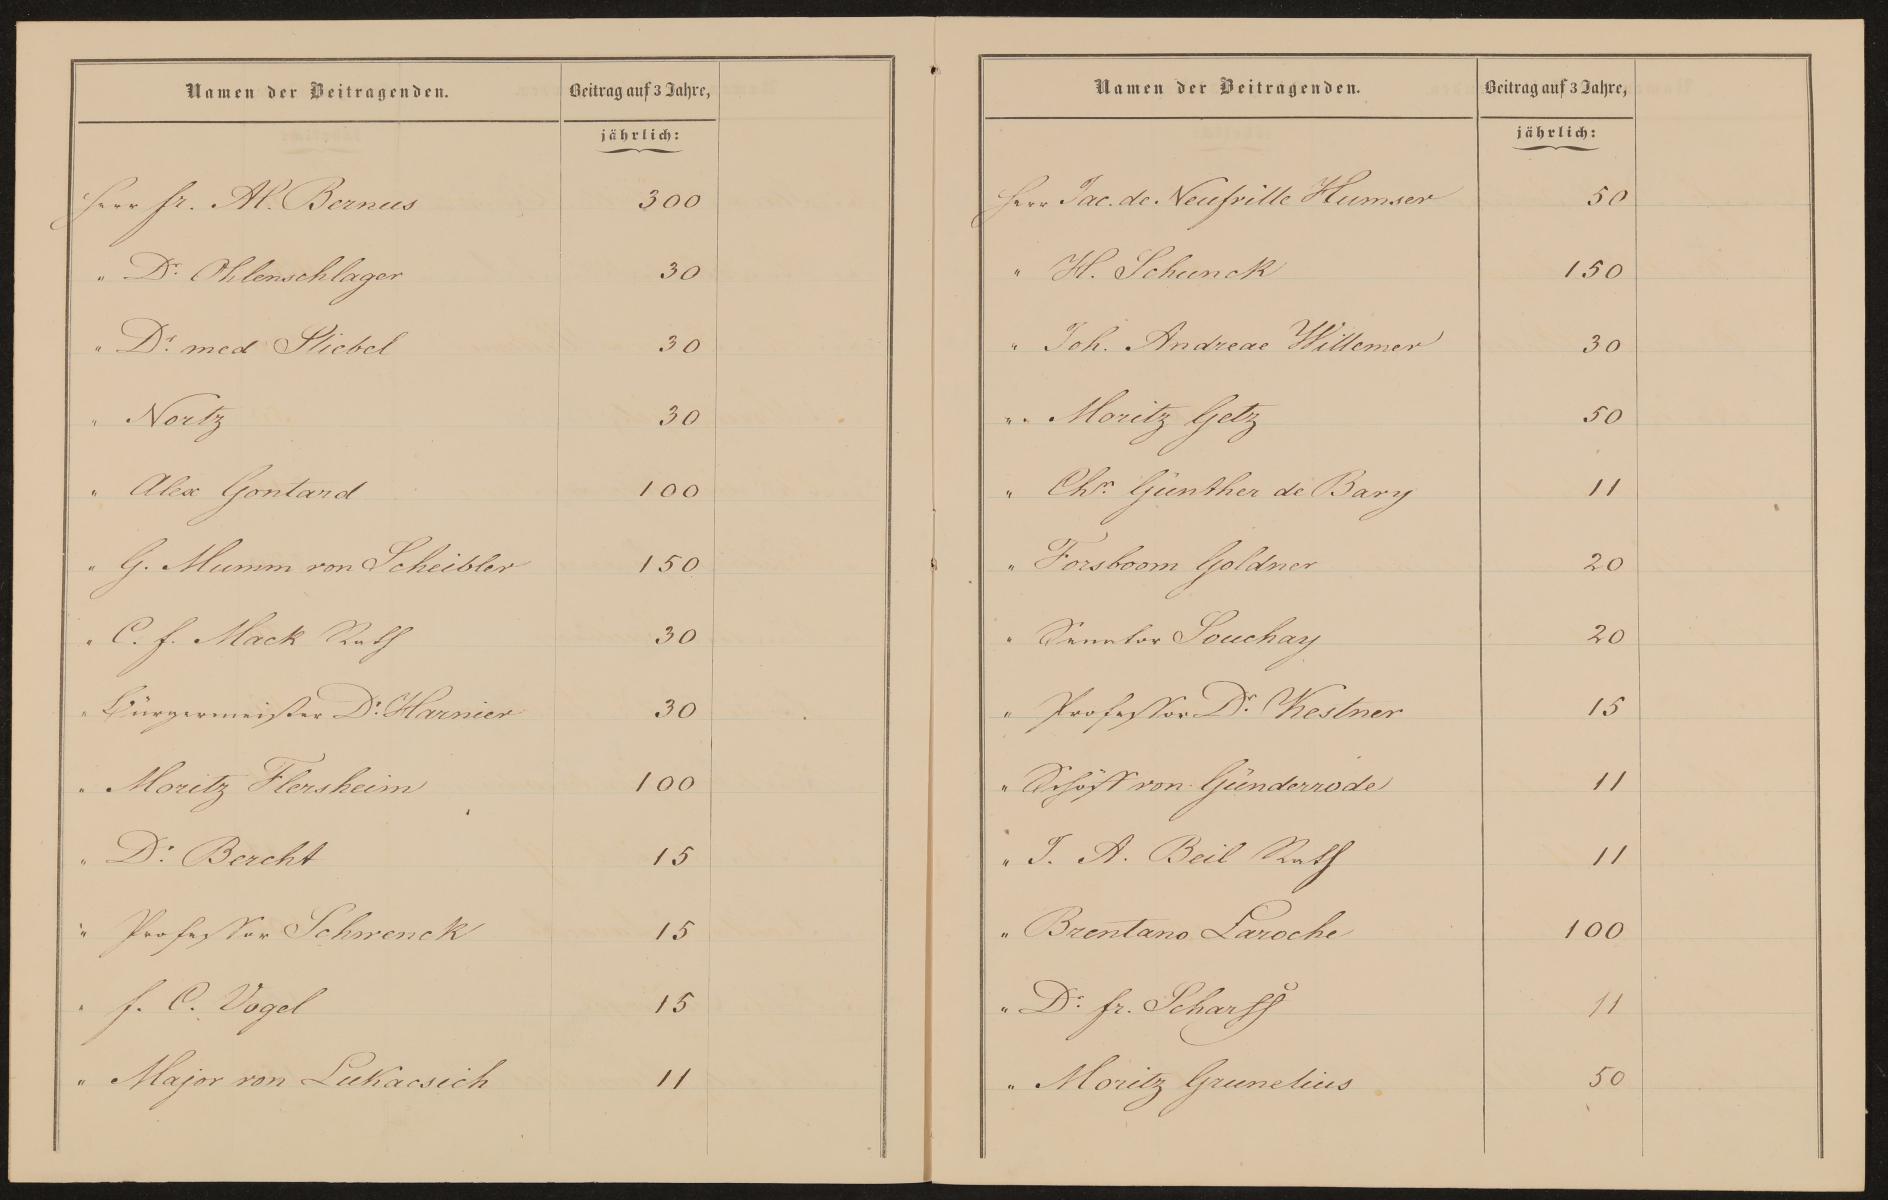 Namen der Beitragenden. Beitrag auf 3 Jahre,
jährlich:
Herr Fr. Al. Bernus 300
" Dr. Ohlenschlager 30
" Dr. med Stiebel 30
" Nortz 30
" Alex Gontard 100
" G. Mumm von Scheibler 150
" C. F. Mack Rath 30
" Bürgermeister Dr. Harnier 30
" Moritz Flersheim 100
" Dr. Bercht 15
" Professor Schwenck 15
" F. C. Vogel 15
" Major von Lukacsich 11
Namen der Beitragenden. Beitrag auf 3 Jahre,
jährlich:
Herr Jac. de Neufville Humser 50
" H. Schunck 150
" Joh. Andreae Willemer 30
" Moritz Getz 50
" Chr. Günther de Bary 11
" Forsboom Goldner 20
" Senator Souchay 20
" Professor Dr. Kestner 15
" Schöff von Günderrode 11
" J. A. Beil Rath 11
" Brentano Laroche 100
" Dr. Fr. Scharff 11
" Moritz Grunelius 50